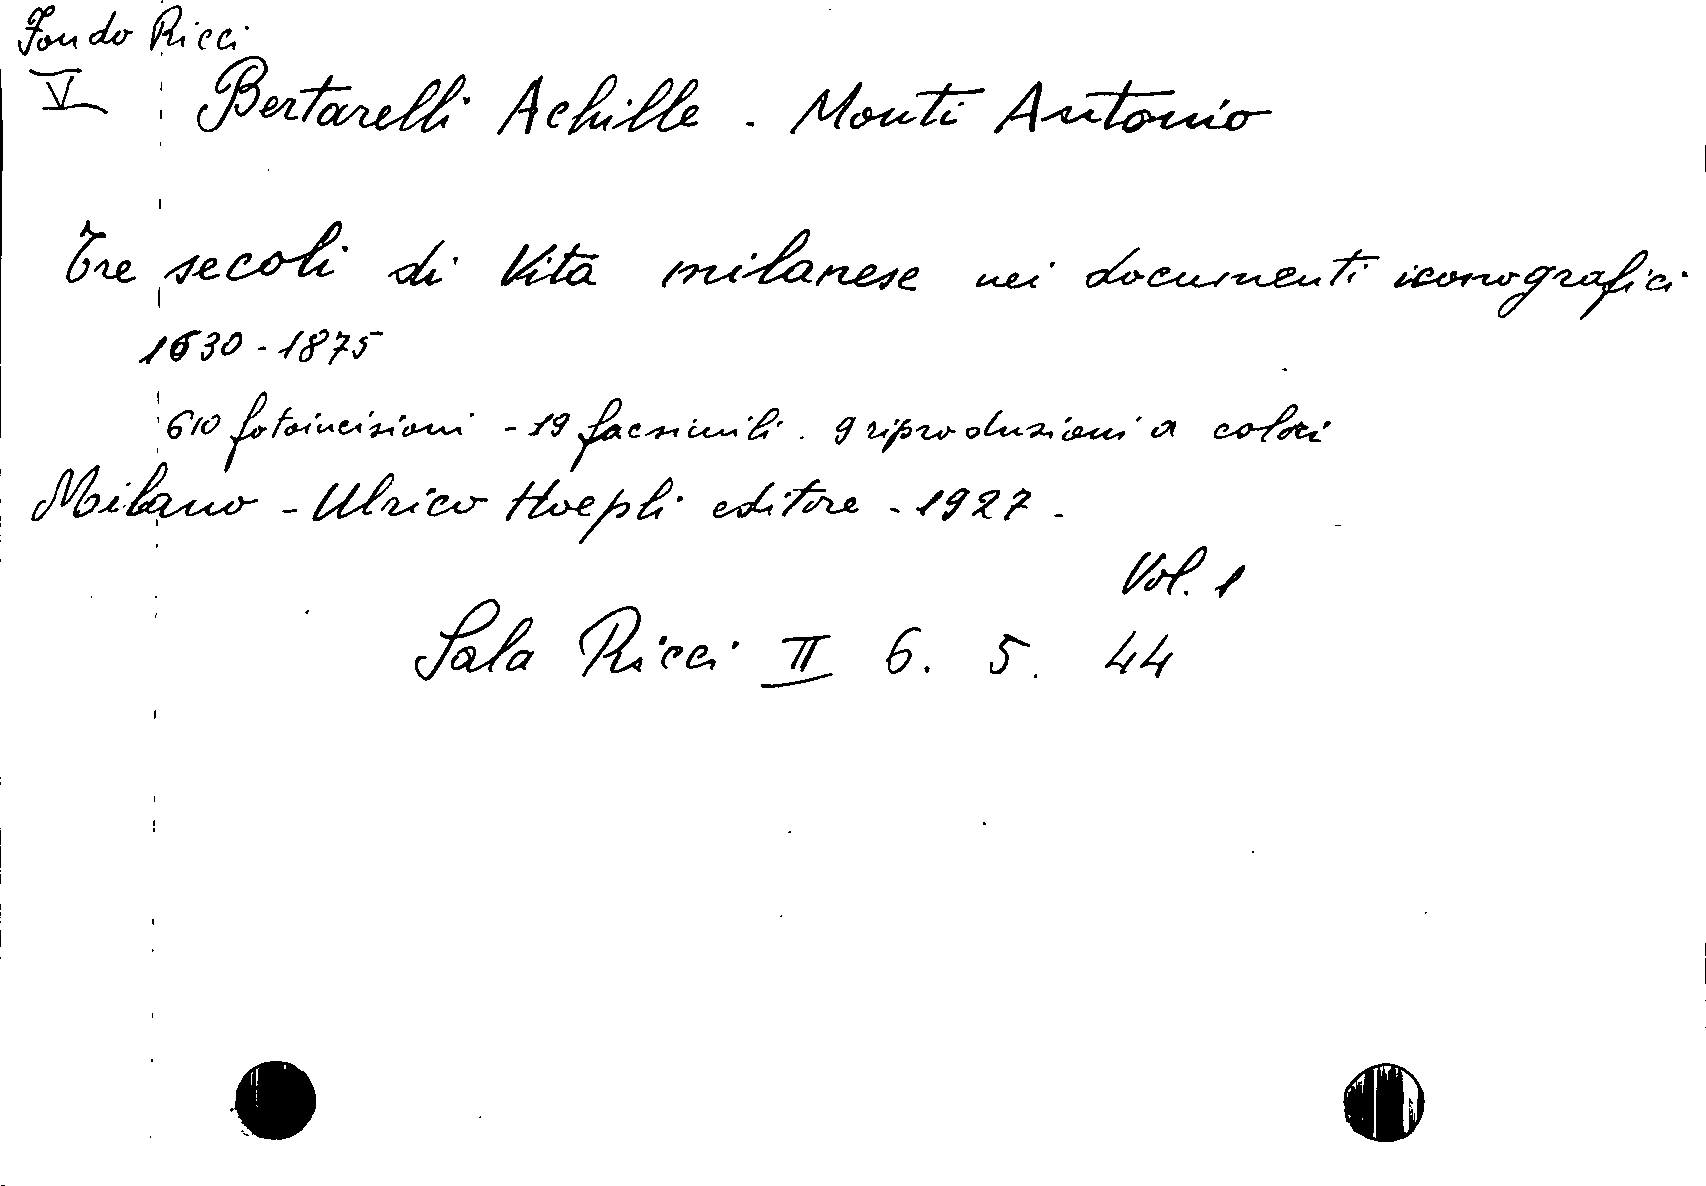 Fondo Ricci
V Bertarelli Achille - Monti Antonio
Tre secoli di Vita milanese nei documenti iconografici
1630 - 1875
610 fotoincisioni - 19 facsimili. 9 riproduzioni a colori
Milano - Ulrico Hoepli editore - 1927 -
Vol. 1
Sala Ricci II 6. 5. 44